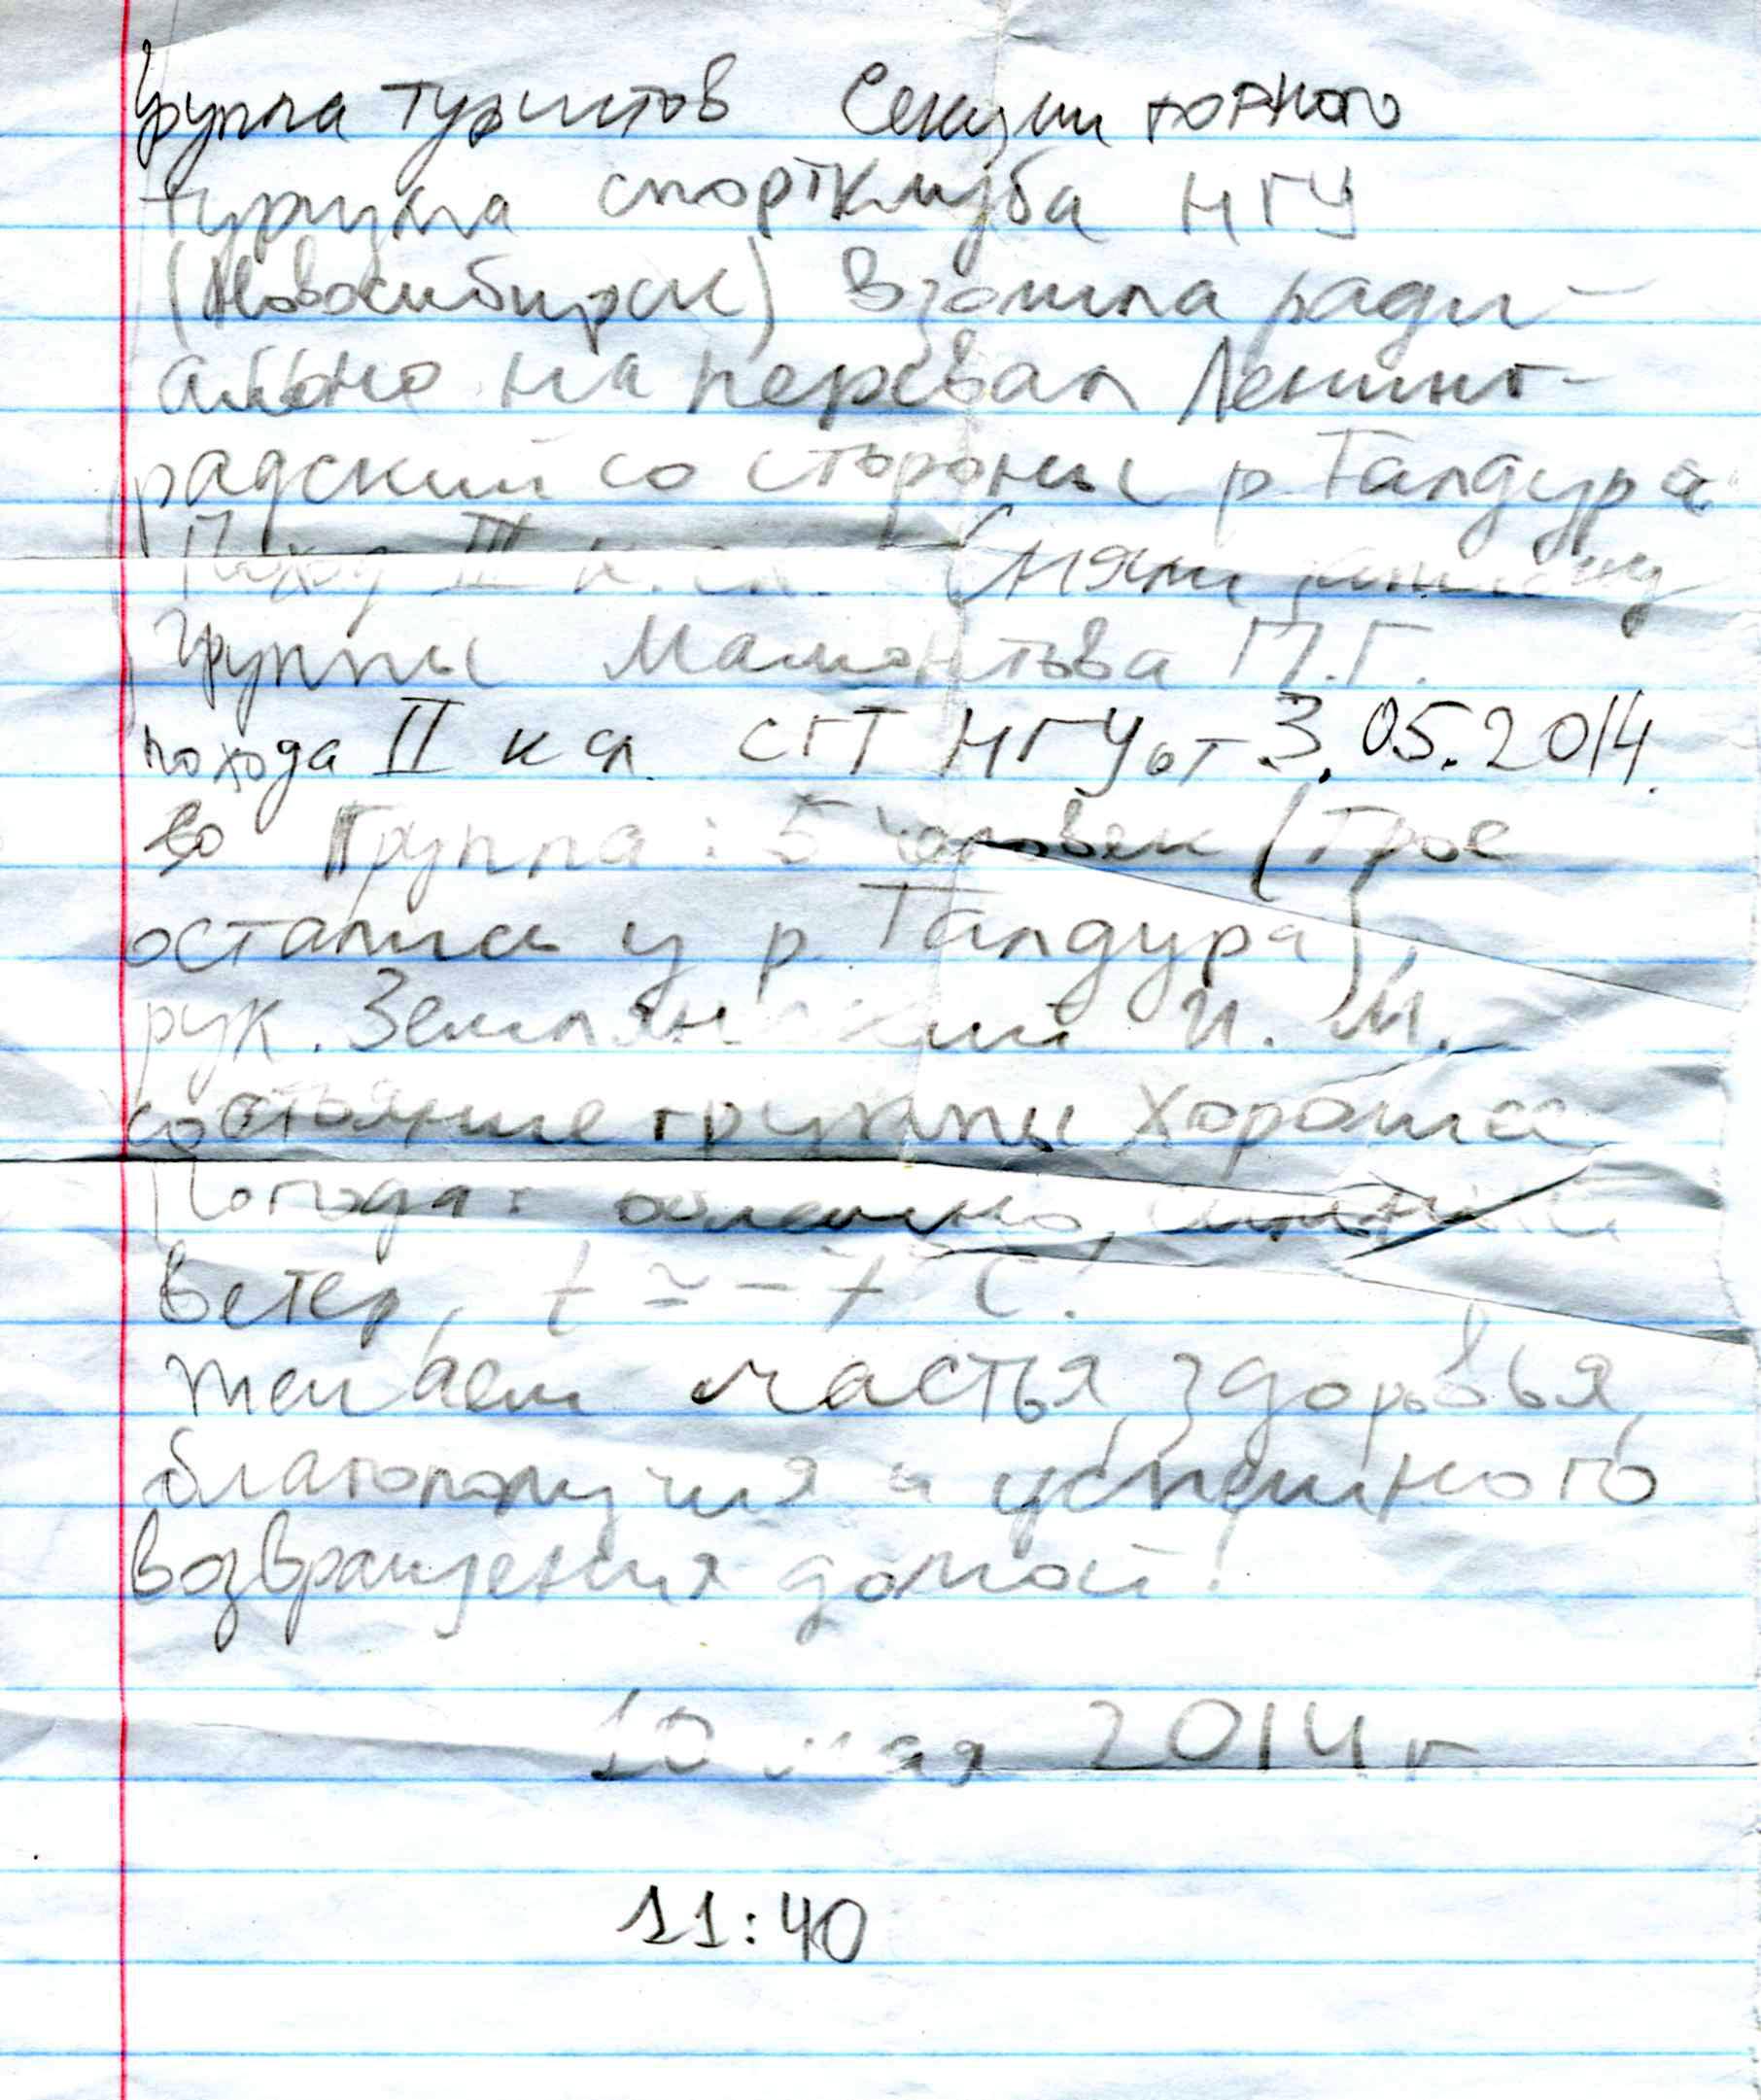 Группа туристов Секции горного
туризма спортклуба НГУ
(Новосибирск) взошла ради-
ально на перевал Ленинг-
радский со стороны р. Талдура
Поход III к.сл. Сняли записку
группы Мамонтова П.Г.
похода II к сл. СГТ НГУ от 3.05.2014.
Группа: 5 человек (Трое
остались у р. Талдура),
рук. Землянский И. И.
состояние группы хорошее
Погода: облачно, сильный
ветер, t ≃ - 7° C.
Желаем счастья, здоровья,
благополучия и успешного
возвращения домой!
10 мая 2014 г
11:40